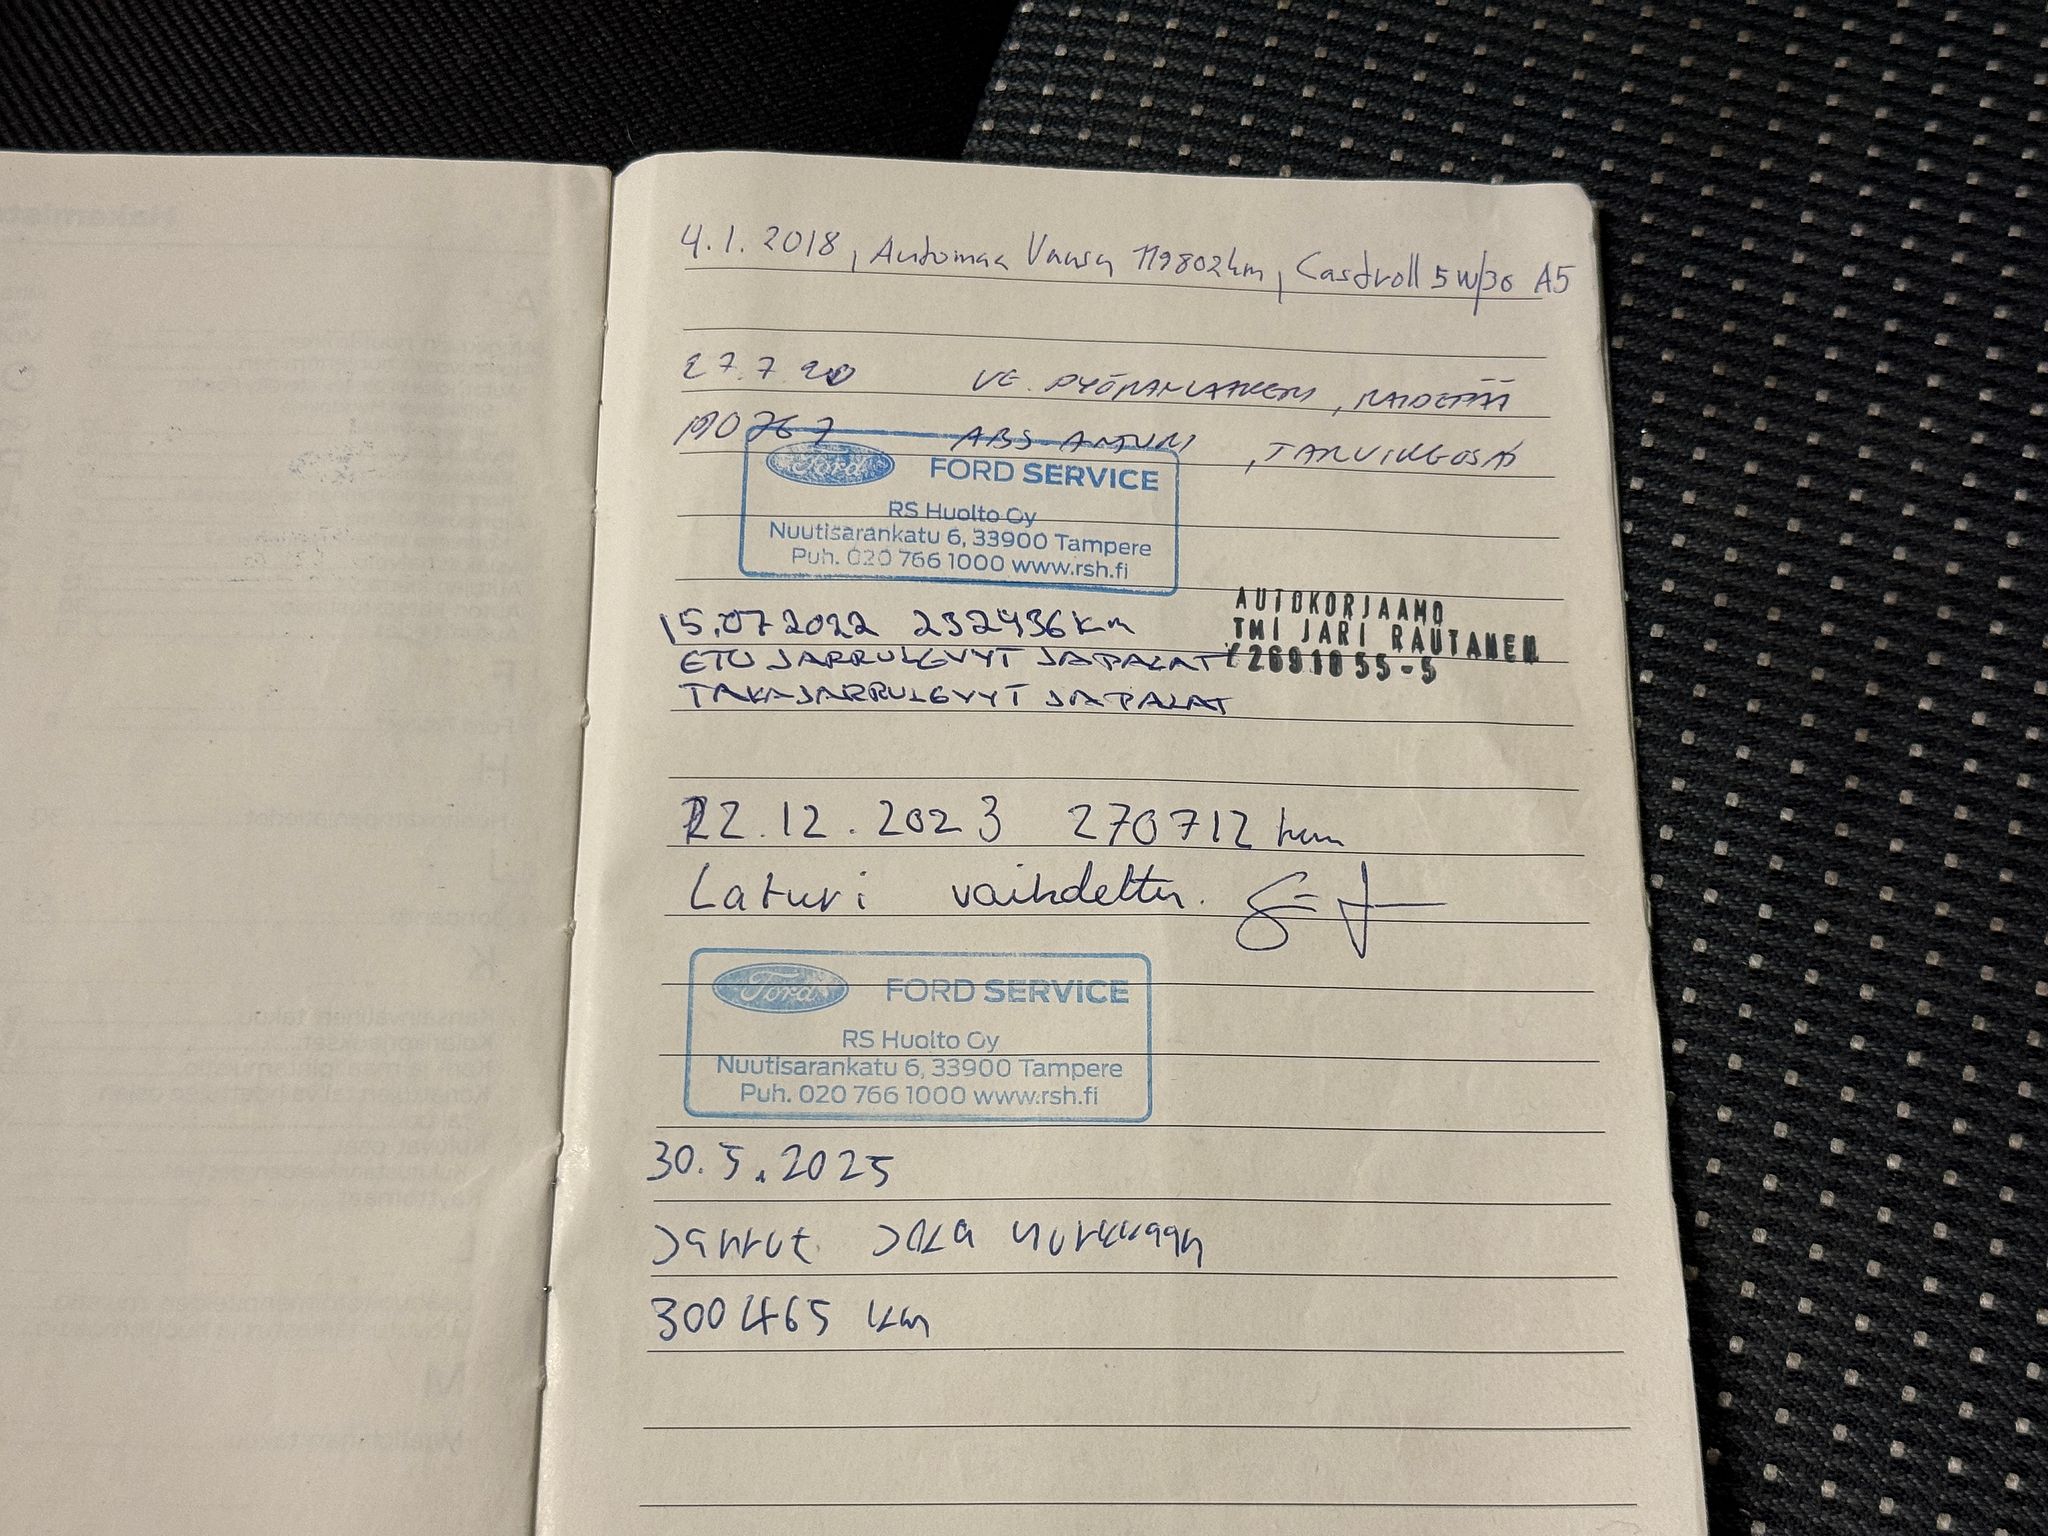 4.1.2018, Automaa Vaasa 119802km, Castroll 5W/30 A5
27.7.20 VE. PYÖRÄNLAAKERI,
190767 ABS-ANTURI , TARVIKEOSA
Ford FORD SERVICE
RS Huolto Oy
Nuutisarankatu 6, 33900 Tampere
Puh. 020 766 1000 www.rsh.fi
AUTOKORJAAMO
TMI JARI RAUTANEN
Y2691055-5
15.07.2022 232436km
ETU JARRULEVYT JA PALAT
TAKAJARRULEVYT JA PALAT
22.12.2023 270712 km
Laturi vaihdettu.
Ford FORD SERVICE
RS Huolto Oy
Nuutisarankatu 6, 33900 Tampere
Puh. 020 766 1000 www.rsh.fi
30.5.2025
Jarrut joka nurkkaan
300465 km